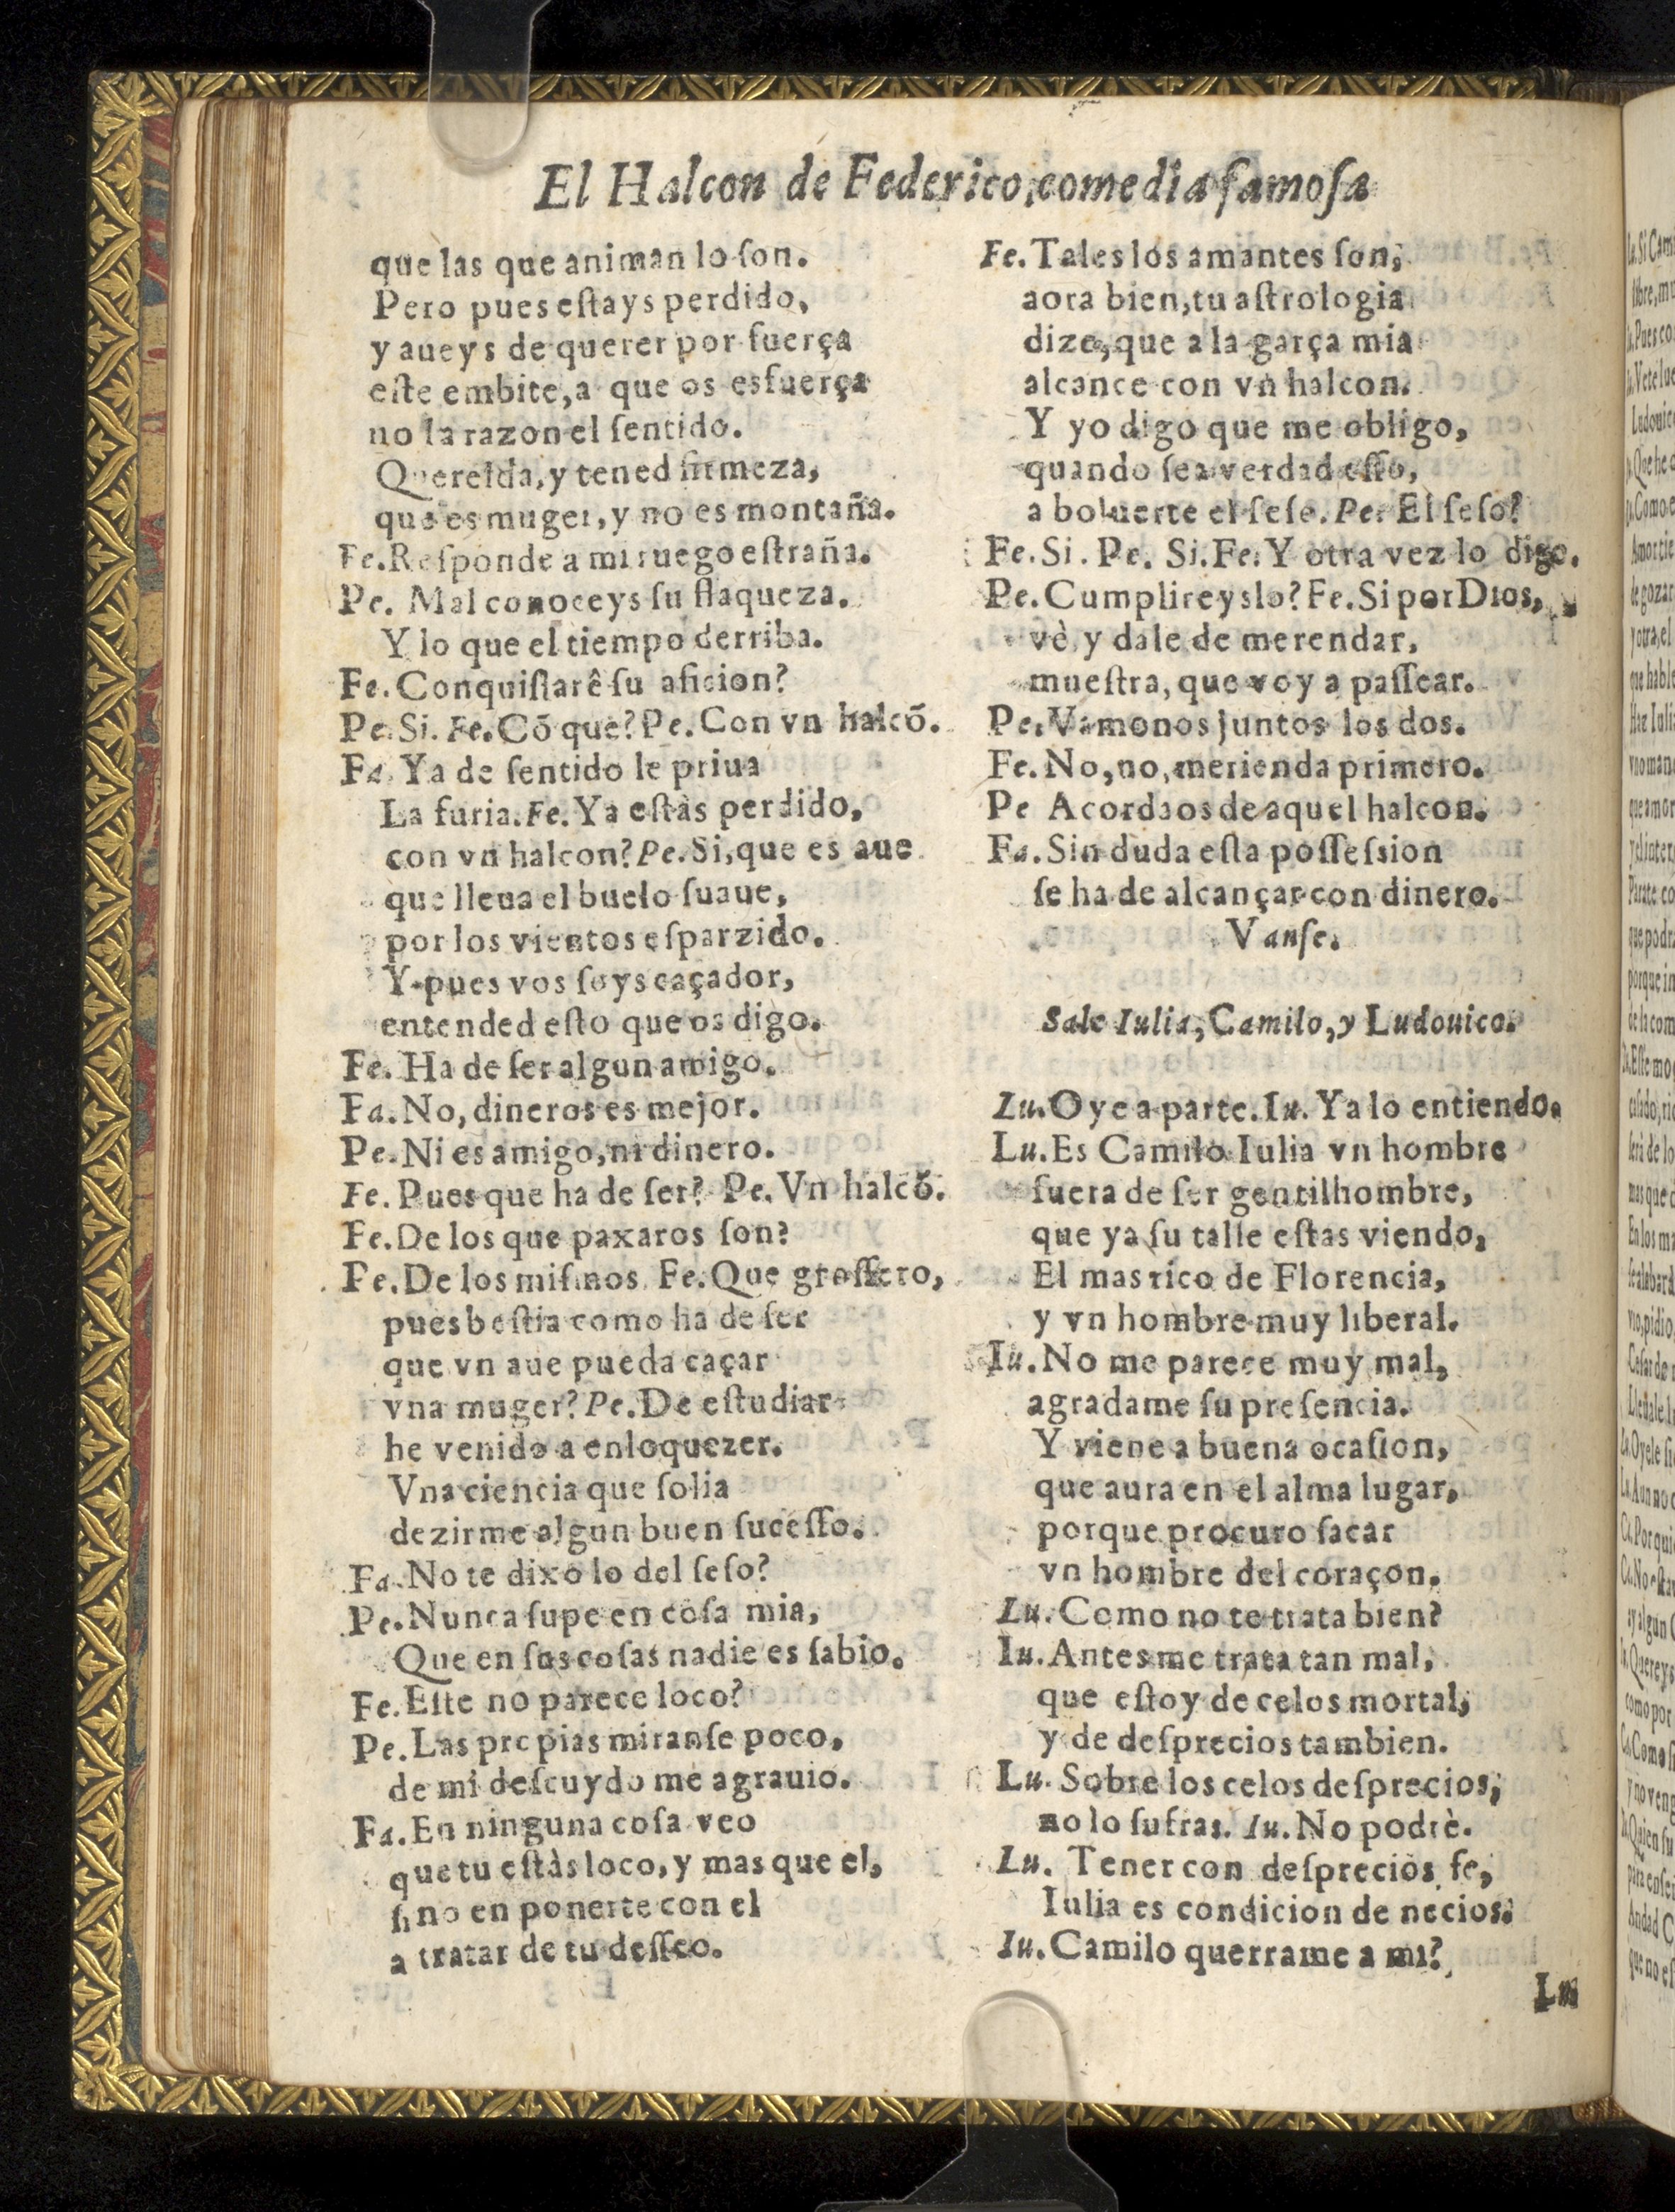 El Halcon de Federico, comedia famoſa
que las que animan lo ſon.
Pero pues eſtays perdido,
y aueys de querer por fuerça
eſte embite, a que os esfuerça
no la razon el ſentido.
Querelda, y tened firmeza,
que es muger, y no es montaña.
Fe. Reſponde a mi ruego eſtraña.
Pe. Mal conoceys ſu flaqueza.
Y lo que el tiempo derriba.
Fe. Conquiſtarê ſu aficion?
Pe. Si. Fe. Cõ que? Pe. Con vn halcõ.
Fa. Ya de ſentido le priua
La furia. Fe. Ya eſtàs perdido,
con vn halcon? Pe. Si, que es aue
que lleua el buelo ſuaue,
por los vientos eſparzido.
Y pues vos ſoys caçador,
entended eſto que os digo.
Fe. Ha de ſer algun amigo.
Fa. No, dineros es mejor.
Pe. Ni es amigo, ni dinero.
Fe. Pues que ha de ſer? Pe. Vn halcõ.
Fe. De los que paxaros ſon?
Fe. De los miſmos. Fe. Que groſſero,
pues beſtia como ha de ſer
que vn aue pueda caçar
vna muger? Pe. De eſtudiar
he venido a enloquezer.
Vna ciencia que ſolia
dezirme algun buen ſuceſſo.
Fa. No te dixo lo del ſeſo?
Pe. Nunca ſupe en coſa mia,
Que en ſus coſas nadie es ſabio.
Fe. Eſte no parece loco?
Pe. Las propias miranſe poco,
de mi deſcuydo me agrauio.
Fa. En ninguna coſa veo
que tu eſtàs loco, y mas que el,
ſino en ponerte con el
a tratar de tu deſſeo.
Fe. Tales los amantes ſon,
aora bien, tu aſtrologia
dize, que a la garça mia
alcance con vn halcon.
Y yo digo que me obligo,
quando ſea verdad eſſo,
a boluerte el ſeſo. Pe. El ſeſo?
Fe. Si. Pe. Si. Fe. Y otra vez lo digo.
Pe. Cumplireyslo? Fe. Si por Dios,
vè y dale de merendar,
mueſtra, que voy a paſſear.
Pe. Vamonos juntos los dos.
Fe. No, no, merienda primero.
Pe Acordaos de aquel halcon.
Fa. Sin duda eſta poſſeſsion
ſe ha de alcançar con dinero.
Vanſe.
Sale Iulia, Camilo, y Ludouico.
Lu. Oye a parte. Iu. Ya lo entiendo.
Lu. Es Camilo Iulia vn hombre
fuera de ſer gentilhombre,
que ya ſu talle eſtas viendo,
El mas rico de Florencia,
y vn hombre muy liberal.
Iu. No me parece muy mal,
agradame ſu preſencia.
Y viene a buena ocaſion,
que aura en el alma lugar,
porque procuro ſacar
vn hombre del coraçon.
Lu. Como no te trata bien?
Iu. Antes me trata tan mal,
que eſtoy de celos mortal,
y de deſprecios tambien.
Lu. Sobre los celos deſprecios,
no lo ſufras. Iu. No podrè.
Lu. Tener con deſprecios fe,
Iulia es condicion de necios.
Iu. Camilo querrame a mi?
Lu